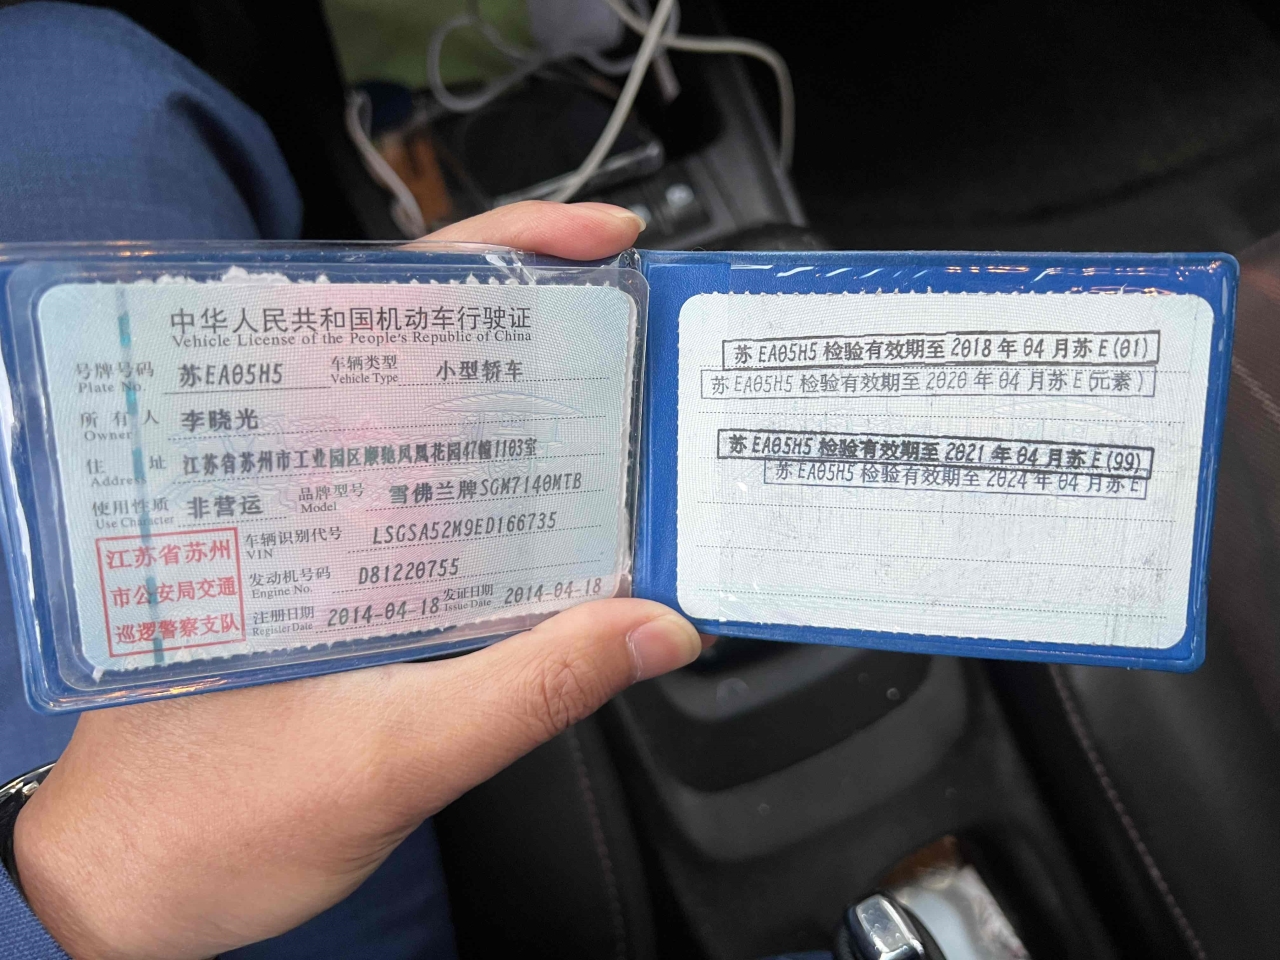 中华人民共和国机动车行驶证
Vehicle License of the People's Republic of China
号牌号码 Plate No. 苏EA05H5 车辆类型 Vehicle Type 小型轿车
所有人 Owner 李晓光
住址 Address 江苏省苏州市工业园区顺驰凤凰花园47幢1103室
使用性质 Use Character 非营运 品牌型号 Model 雪佛兰牌SGM7140MTB
车辆识别代号 VIN LSGSA52M9ED166735
发动机号码 Engine No. D81220755
注册日期 Register Date 2014-04-18 发证日期 Issue Date 2014-04-18
江苏省苏州
市公安局交通
巡逻警察支队
苏EA05H5检验有效期至2018年04月苏E(01)
苏EA05H5检验有效期至2020年04月苏E(元素)
苏EA05H5检验有效期至2021年04月苏E(99)
苏EA05H5检验有效期至2024年04月苏E